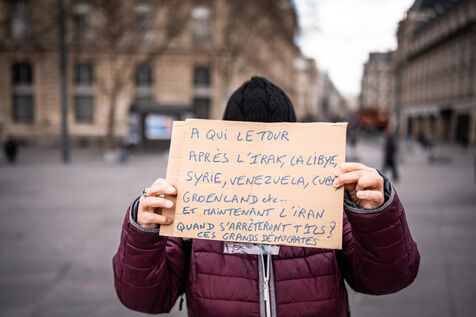 A QUI LE TOUR
APRÈS L'IRAK, LA LIBYE,
SYRIE, VENEZUELA, CUBA
GROENLAND etc...
ET MAINTENANT L'IRAN
QUAND S'ARRÊTERONT T'ILS ?
CES GRANDS DÉMOCRATES